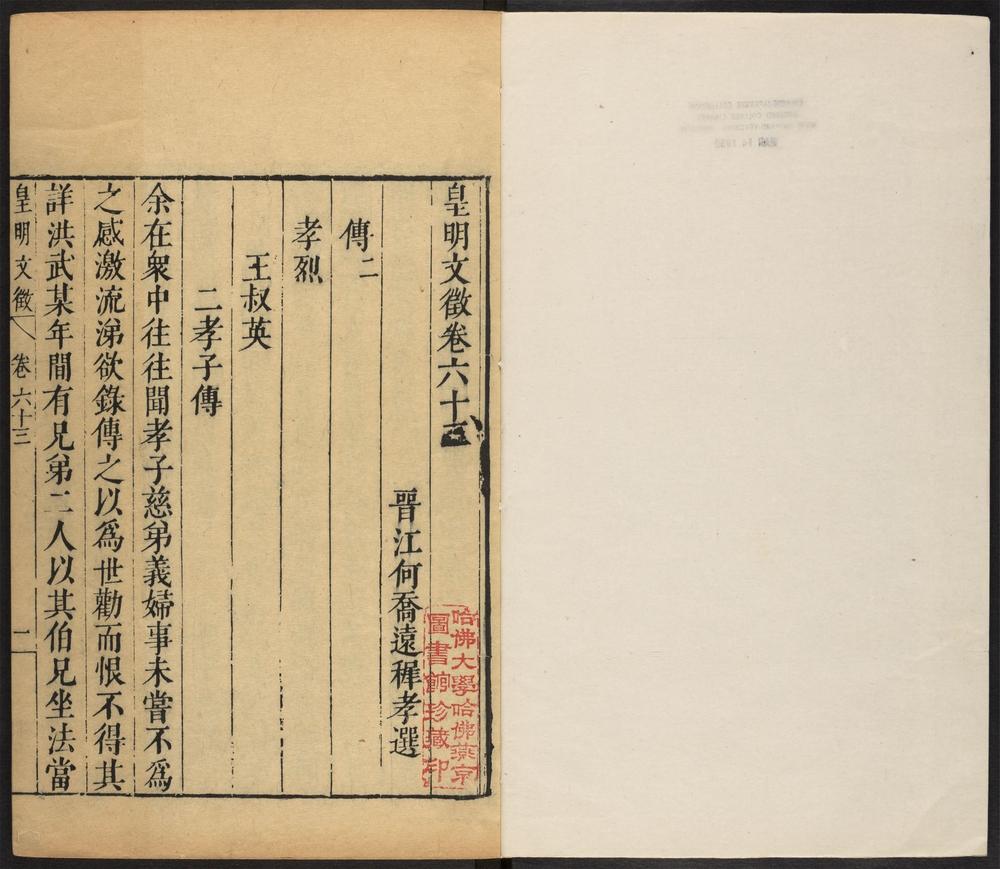 皇明文徵卷六十三
晉江何喬遠穉孝選
傳二
孝烈
王叔英
二孝子傳
余在衆中往往聞孝子慈弟義婦事未嘗不爲
之感激流涕欲錄傳之以爲世勸而恨不得其
詳洪武某年間有兄弟二人以其伯兄坐法當
皇明文徵 卷六十三 一
哈佛大學哈佛燕京
圖書館珍藏印